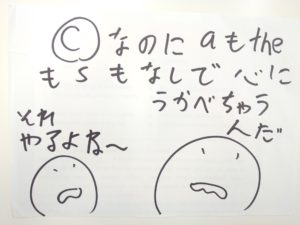 Ⓒなのにaもthe
もsもなしで心に
うかべちゃう
んだ
それ
やるよね〜